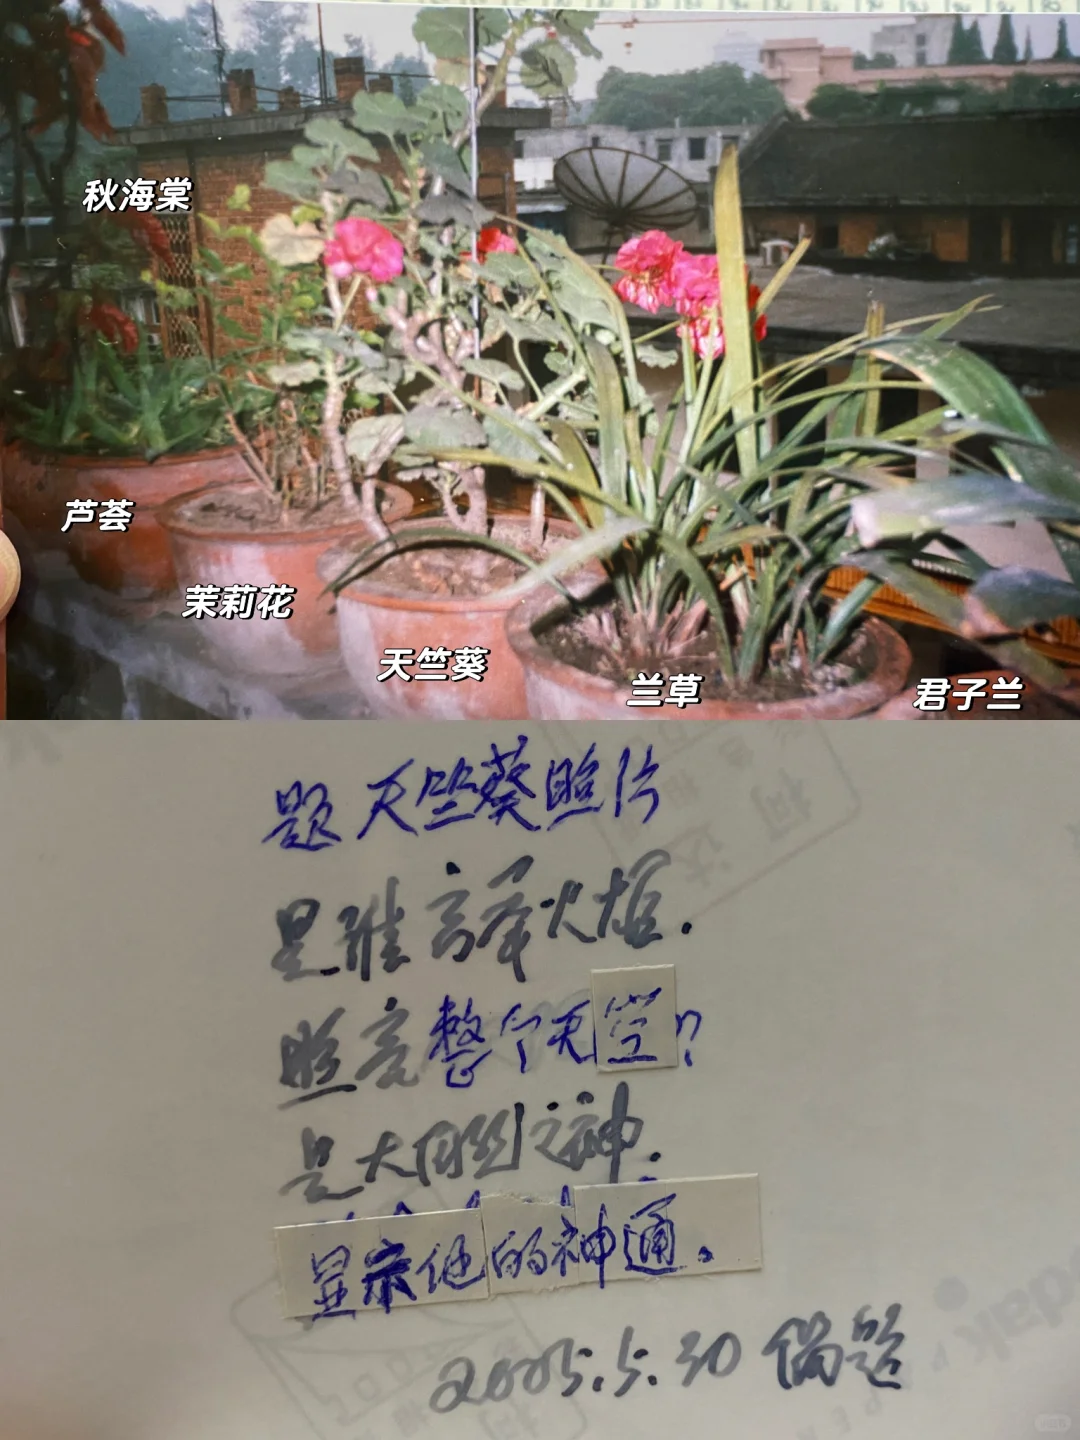 秋海棠
芦荟
茉莉花
天竺葵
兰草
君子兰
题天竺葵照片
是谁高举火炬.
照亮整个天空?
是大自然之神.
显示他的神通.
2005.5.30 偶题